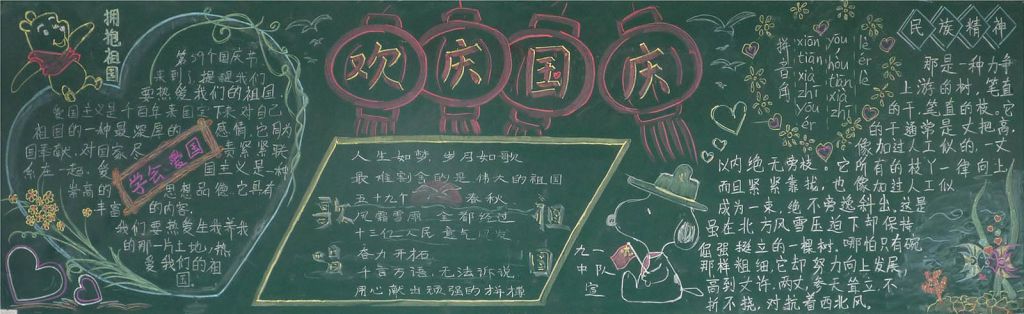 拥抱祖国
第59个国庆节
来到了,提醒我们
要热爱我们的祖国
爱国主义是千百年来固定下来对自己
祖国的一种最深厚的感情,它自动
责紧紧联
系在一起,爱国主义是一种
崇高的思想品德,它具有
丰富的内容.
学会爱国
我们要热爱生我养我
的那一片土地,热
爱我们的祖
国.
欢庆国庆
人生如梦 岁月如歌
最难割舍的是伟大的祖国
五十九个春秋
风霜雪雨 全都经过
十三亿人民 意气风发
奋力开拓
千言万语,无法诉说,
用心献出顽强的拼搏
九一
中队
宣
拼音角
xiān yóu lè
tiān hòu lè
xià tiān
zhī xià
yóu zhī
ér
民族精神
那是一种力争
上游的树,笔直
的干,笔直的枝。它
的干通常是丈把高,
像加过人工似的,一丈
以内绝无旁枝。它所有的枝丫一律向上,
而且紧紧靠拢,也像加过人工似
成为一束,绝不旁逸斜出。这是
虽在北方风雪压迫下却保持
倔强挺立的一棵树,哪怕只有碗
那样粗细,它却努力向上发展,
高到丈许,两丈,参天耸立,不
折不挠,对抗着西北风。